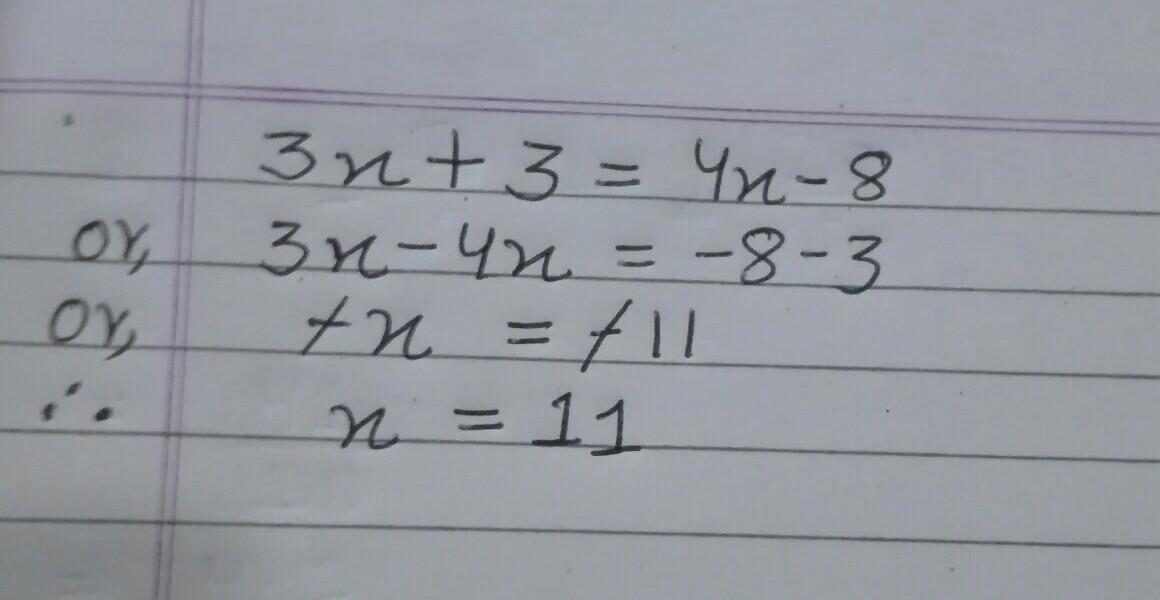 3x + 3 = 4x - 8
or, 3x - 4x = -8 - 3
or, -x = -11
∴ x = 11